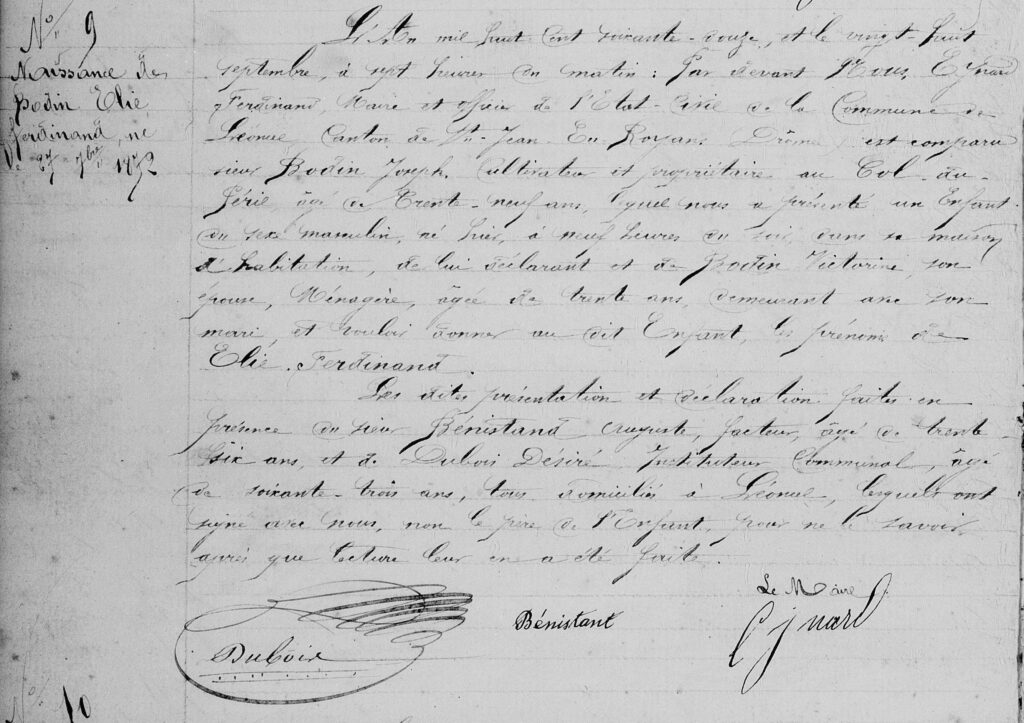 N° 9
Naissance de
Bodin Elie
Ferdinand, né
le 27 7bre 1872
L'An mil huit cent soixante-douze, et le vingt-huit
septembre, à sept heures du matin : Par devant Nous, Eynard
Ferdinand, Maire et officier de l'Etat-Civil de la Commune de
Léoncel, Canton de St-Jean-En-Royans Drôme, est comparu
sieur Bodin Joseph, Cultivateur et propriétaire au Col-du-
Péril, âgé de Trente-neuf ans, lequel nous a présenté un Enfant
du sexe masculin, né hier, à neuf heures du soir, dans sa maison
d'habitation, de lui déclarant et de Bodin Victorine, son
épouse, Ménagère, âgée de trente ans, demeurant avec son
mari, et vouloir donner au dit Enfant, les prénoms de
Elie. Ferdinand.
Les dites présentation et déclaration faites en
présence du sieur Bénistand Auguste, facteur, âgé de trente-
six ans, et de Dubois Désiré, Instituteur Communal, âgé
de soixante-trois ans, tous domiciliés à Léoncel, lesquels ont
signé avec nous, non le père de l'Enfant, pour ne le savoir,
après que lecture leur en a été faite.
Le Maire
Dubois
Bénistant
Eynard
N° 10